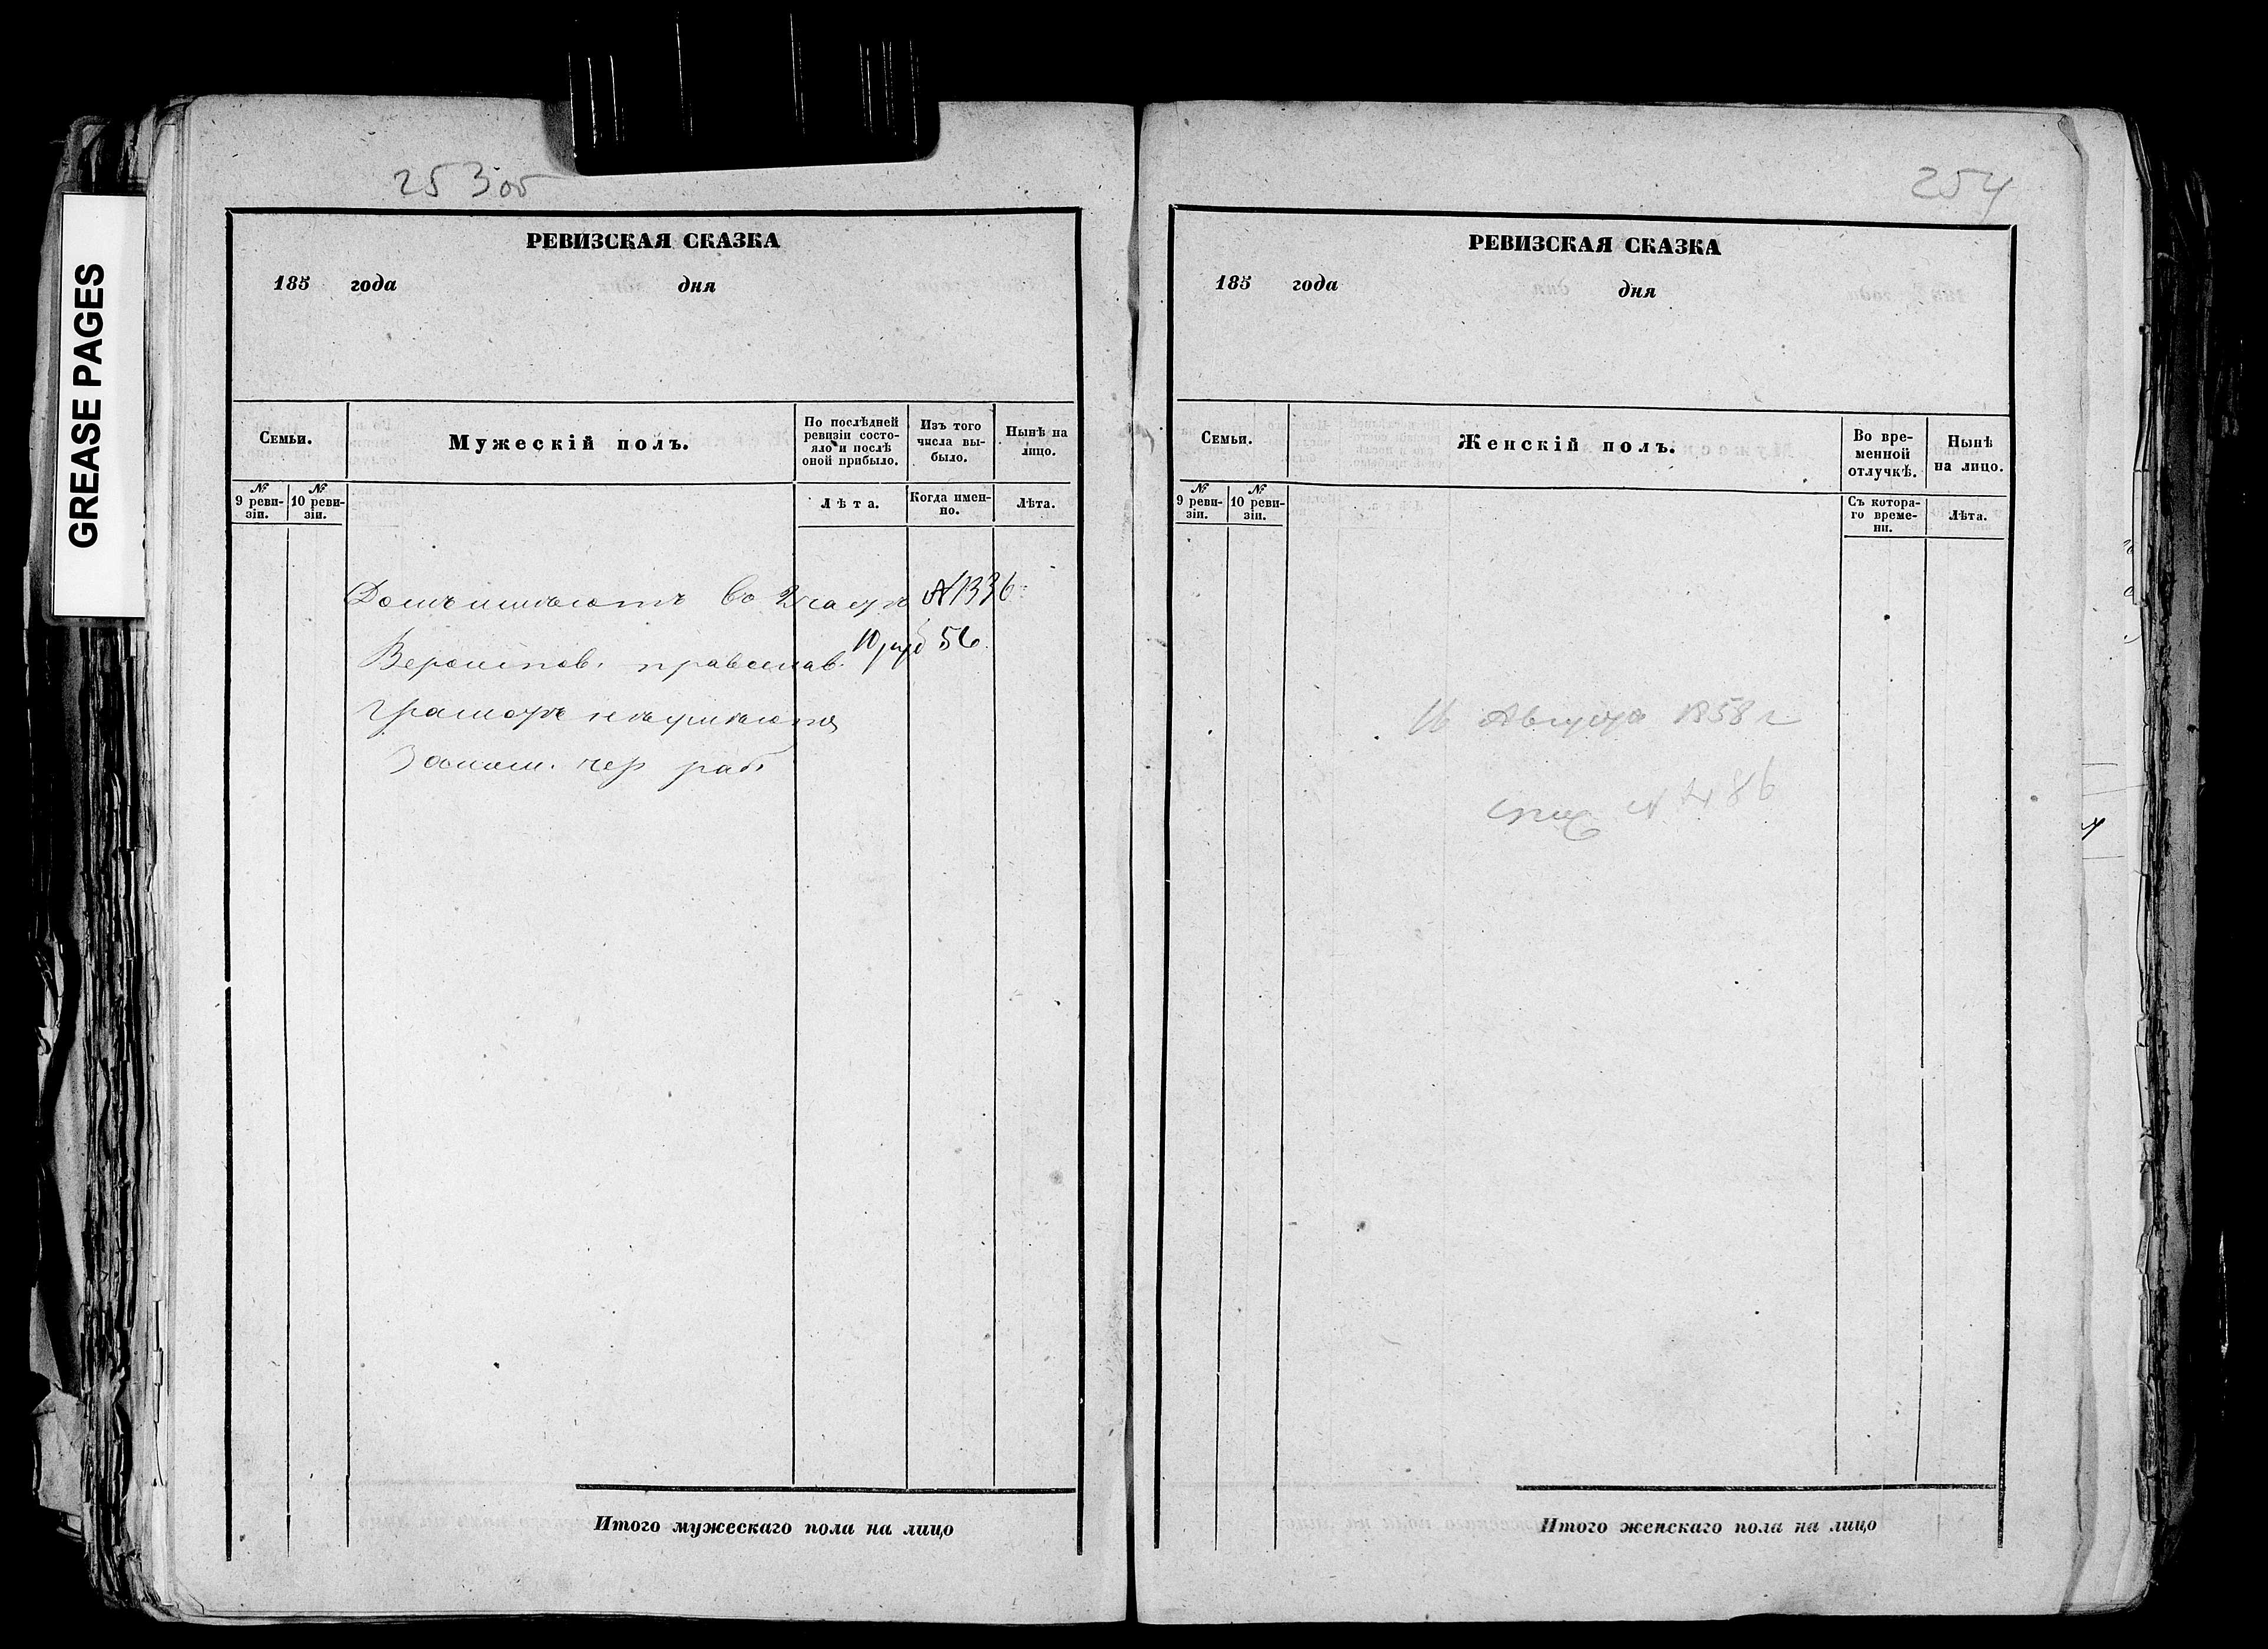 GREASE PAGES
253об
РЕВИЗСКАЯ СКАЗКА
185 года дня
Семьи.
Мужескій полъ.
По послѣдней ревизіи состояло и послѣ оной прибыло.
Изъ того числа выбыло.
Нынѣ на лицо.
№ 9 ревизіи.
№ 10 ревизіи.
Лѣта.
Когда именно.
Лѣта.
Домъ имѣютъ во 2 части №1336
10 руб 56
Вероиспов. православ.
Грамотѣ неумѣютъ
чер раб
Итого мужескаго пола на лицо
254
РЕВИЗСКАЯ СКАЗКА
185 года дня
Семьи.
Женскій полъ.
Во временной отлучкѣ.
Нынѣ на лицо.
№ 9 ревизіи.
№ 10 ревизіи.
Съ котораго времени.
Лѣта.
16 Августа 1858 г
№ 486
Итого женскаго пола на лицо